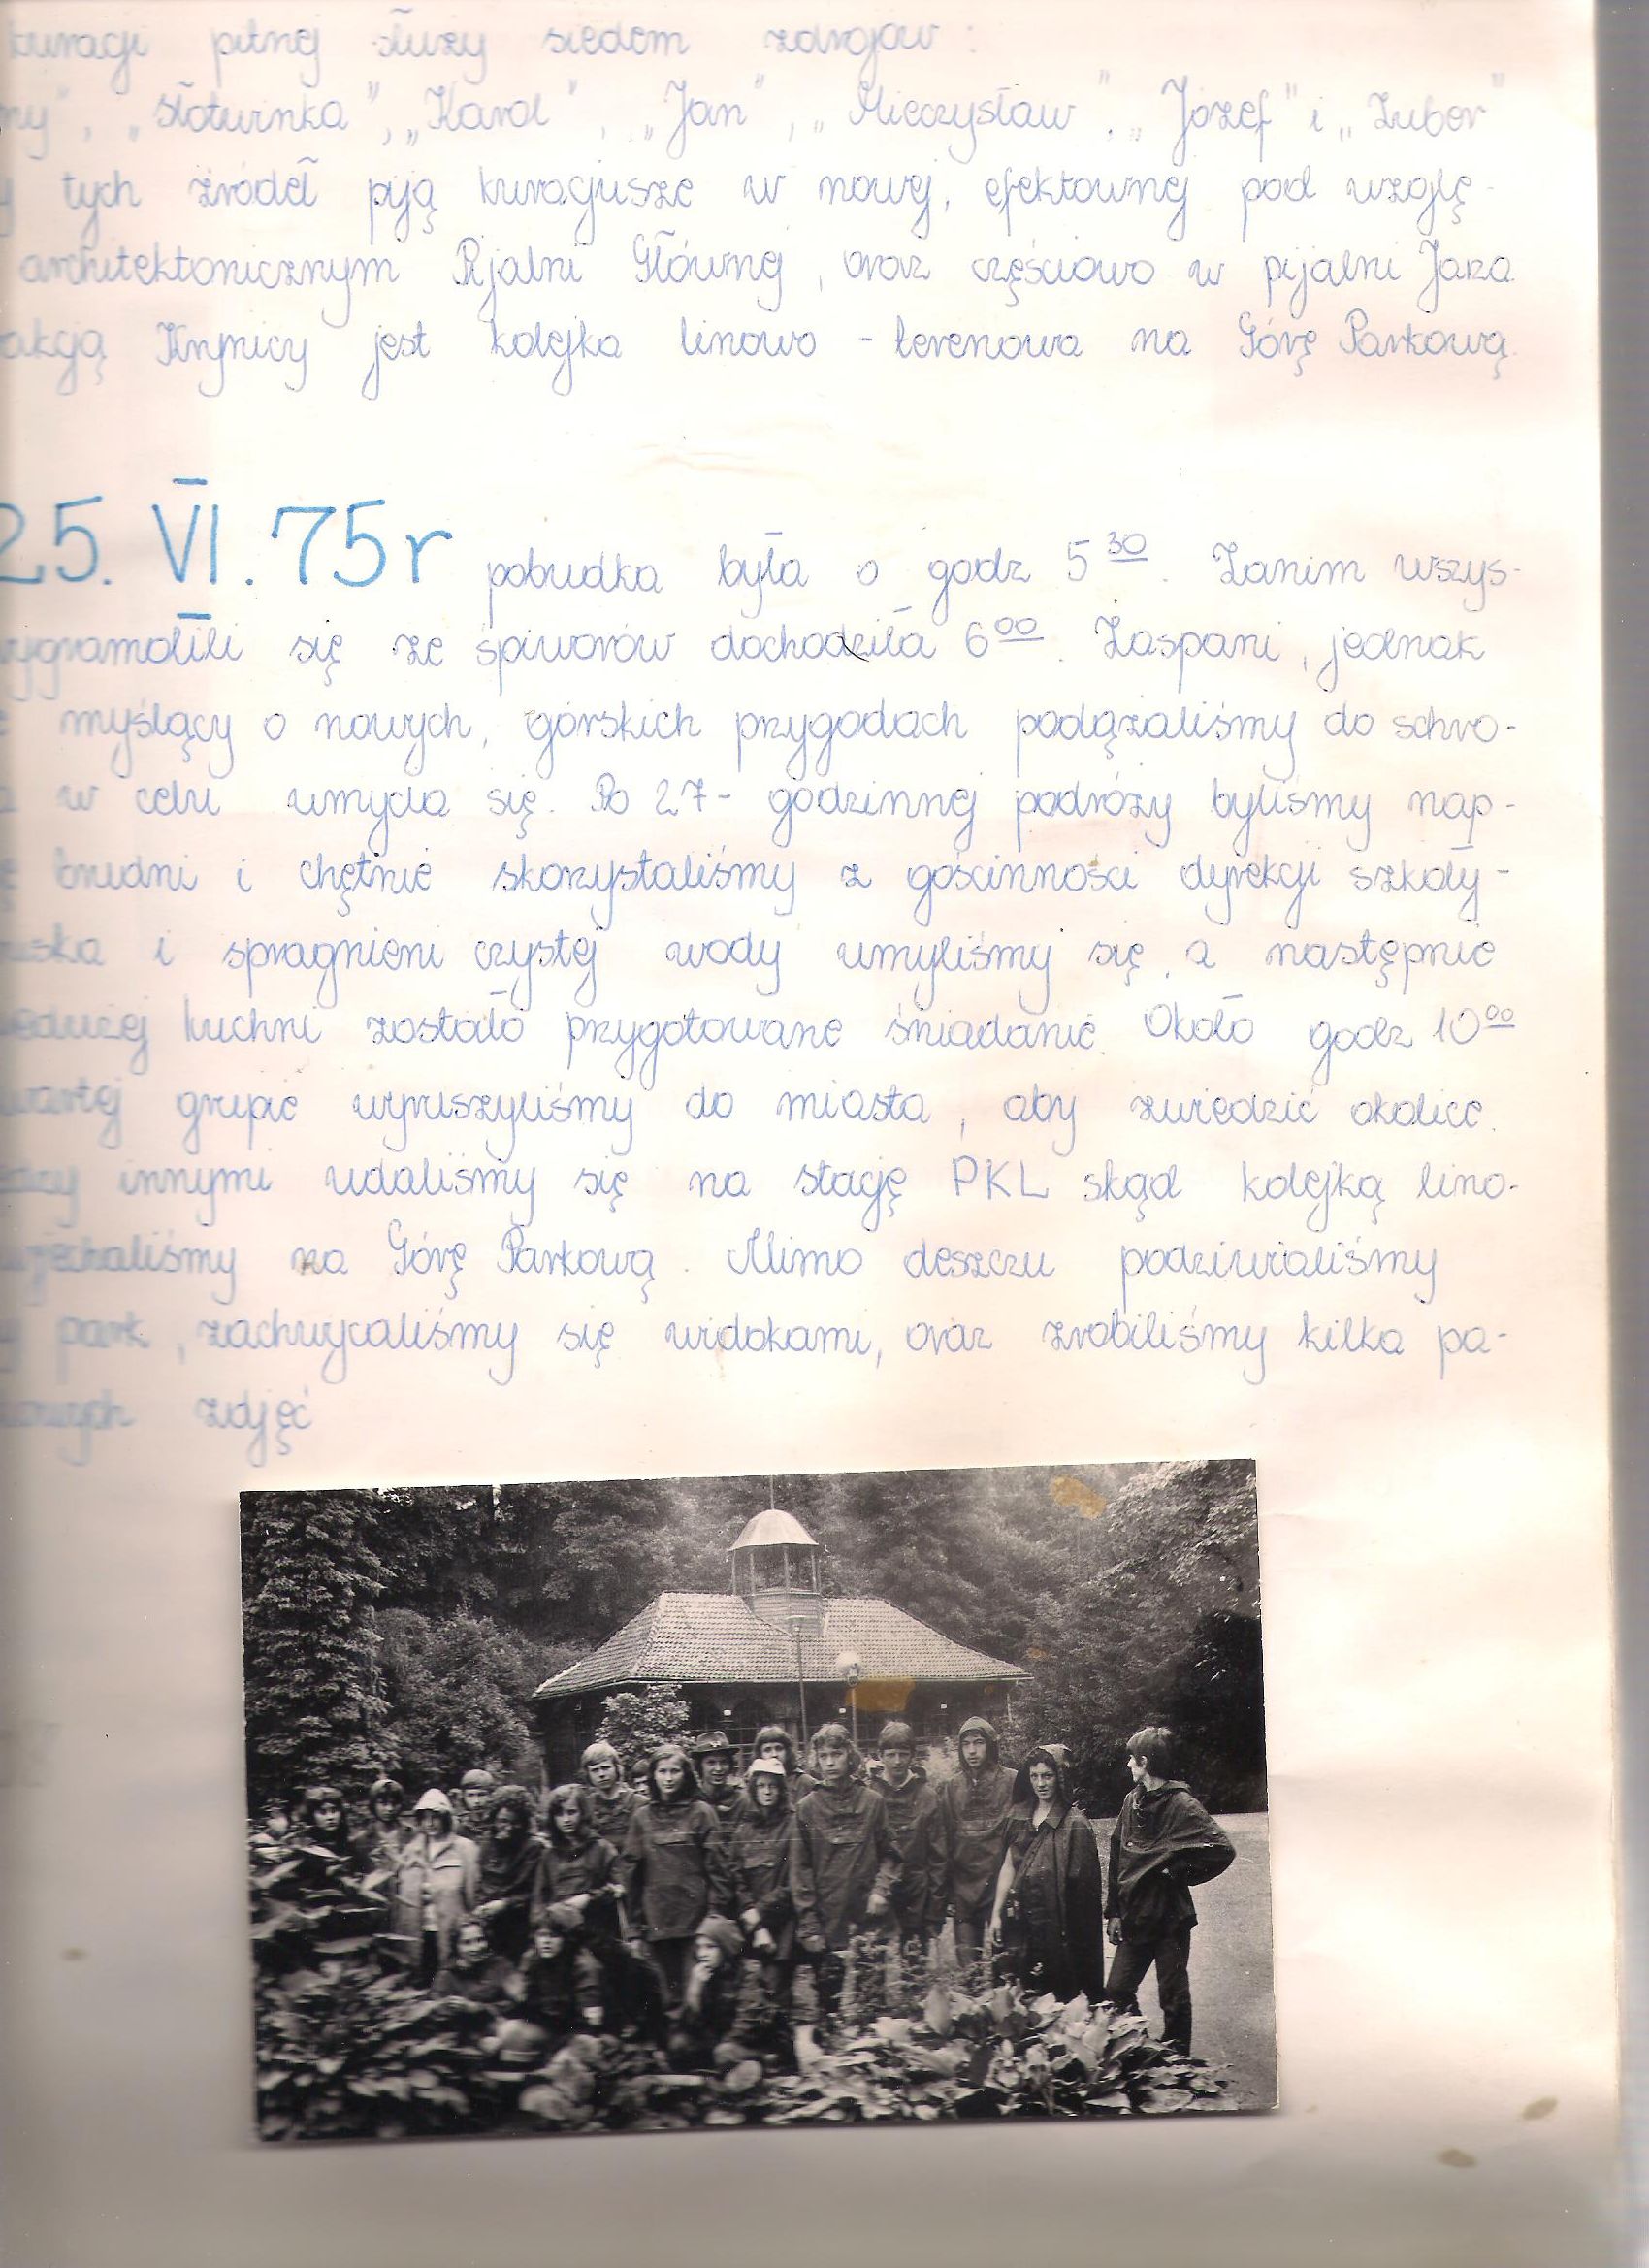 kuracji pitnej służy siedem zdrojów :
ny", „Słotwinka", „Karol", „Jan", „Mieczysław", „Józef" i „Zuber"
y tych źródeł piją kuracjusze w nowej, efektownej pod wzglę-
architektonicznym Pijalni Głównej, oraz częściowo w pijalni Jana.
akcją Krynicy jest kolejka linowo - terenowa na Górę Parkową.
25. VI. 75 r pobudka była o godz 5 30. Zanim wszys-
wygramolili się ze śpiworów dochodziła 6 00. Zaspani, jednak
e myślący o nowych, górskich przygodach podążaliśmy do schro-
a w celu umycia się. Po 27- godzinnej podróży byliśmy nap-
ę brudni i chętnie skorzystaliśmy z gościnności dyrekcji szkoły-
iska i spragnieni czystej wody umyliśmy się, a następnie
kuchni zostało przygotowane śniadanie. Około godz 10 00
wartej grupie wyruszyliśmy do miasta, aby zwiedzić okolice.
ędzy innymi udaliśmy się na stację PKL skąd kolejką lino-
wjechaliśmy na Górę Parkową. Mimo deszczu podziwialiśmy
y park, zachwycaliśmy się widokami, oraz zrobiliśmy kilka pa-
zdjęć